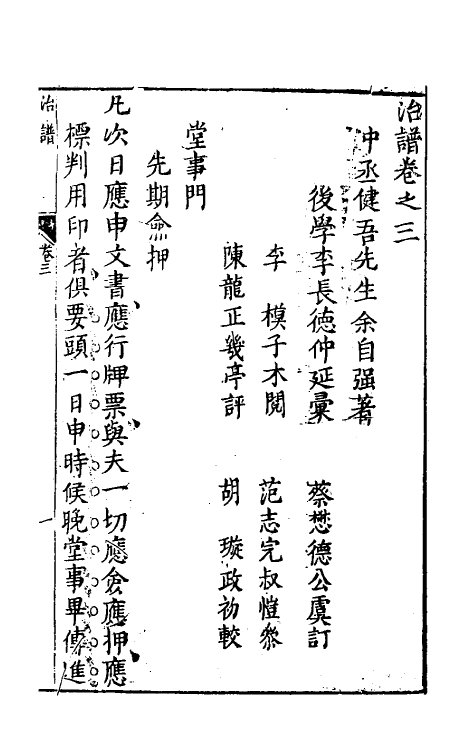 治譜卷之三
中丞健吾先生余自强著
後學李長德仲延彙　蔡懋德公虞訂
李　模子木閱　范志完叔愷叅
陳龍正幾亭評　胡　璇政初較
堂事門
先期僉押
凡次日應申文書應行牌票與夫一切應僉應押應
標判用印者俱要頭一日申時候晚堂事畢傳進
治譜
卷三
一